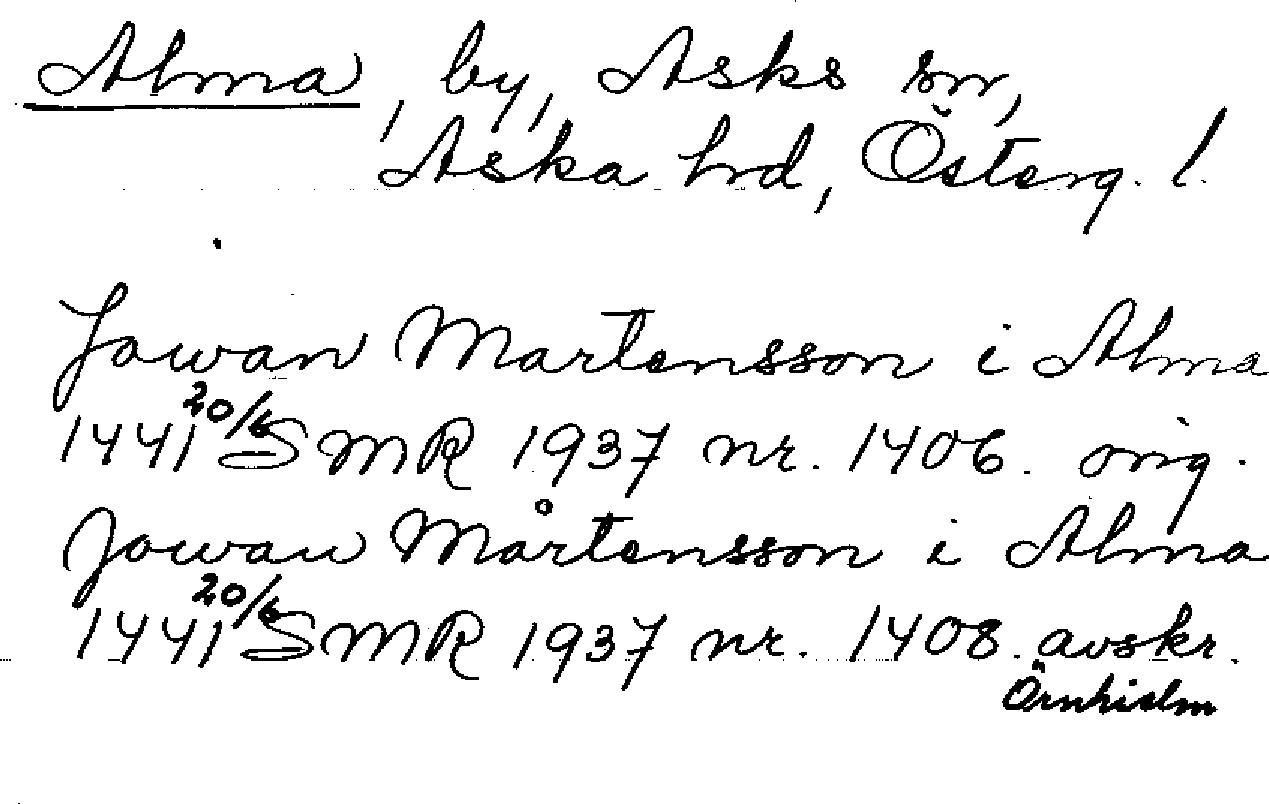 Alma, by, Asks sn,
Aska hrd, Österg. l.
Jowan Martensson i Alma
1441 20/6 SMR 1937 nr. 1406. orig.
Jowan Mårtensson i Alma
1441 20/6 SMR 1937 nr. 1408. avskr.
Örnhielm